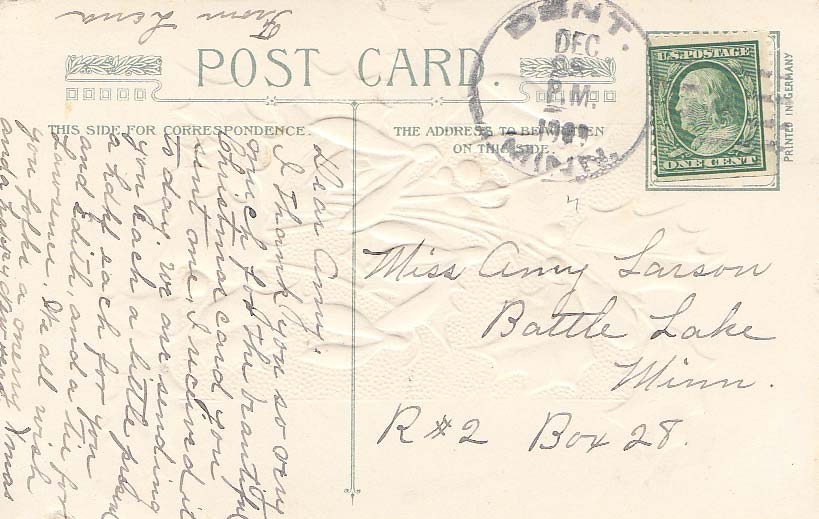 From Lena
POST CARD.
THIS SIDE FOR CORRESPONDENCE.
THE ADDRESS TO BE WRITTEN
ON THIS SIDE
DENT.
DEC
P.M.
MINN.
U.S. POSTAGE
ONE CENT
PRINTED IN GERMANY
Dear Amy,
I thank you so very
much for the beautiful
Christmas card you
sent me, I received it
to day. We are sending
you each a little
a hdkf each for you
and Edith, and a tie for
Lawrence. We all wish
you folks a merry Xmas
and a happy New Year
Miss Amy Larson
Battle Lake
Minn.
R#2 Box 28.